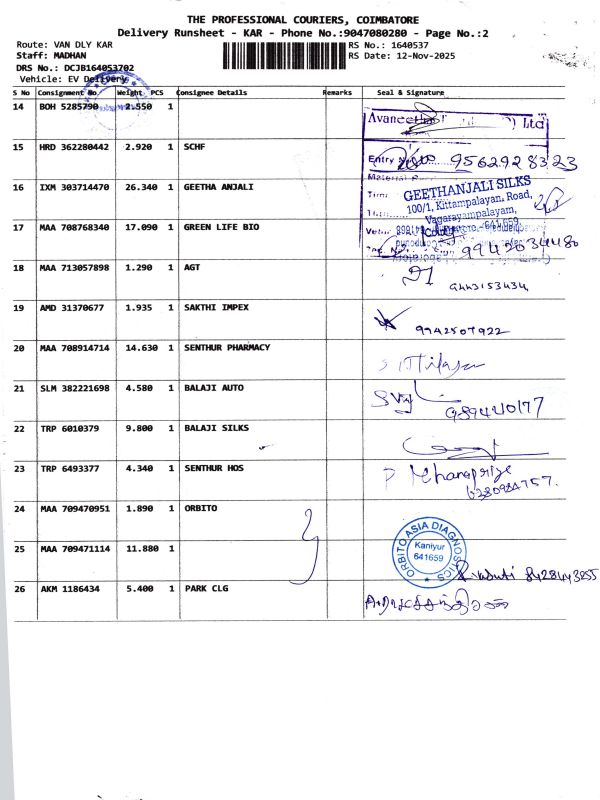 THE PROFESSIONAL COURIERS, COIMBATORE
Delivery Runsheet - KAR - Phone No.:9047080280 - Page No.:2
Route: VAN DLY KAR
RS No.: 1640537
Staff: MADHAN
RS Date: 12-Nov-2025
DRS No.: DCJB164053702
Vehicle: EV Delivery
S No Consignment No. Weight PCS Consignee Details Remarks Seal & Signature
14 BOH 5285790 2.550 1
Avaneetha Ltd
15 HRD 362280442 2.920 1 SCHF
Entry No 9562928323
Material
16 IXM 303714470 26.340 1 GEETHA ANJALI
GEETHANJALI SILKS
100/1, Kittampalayan, Road,
Vagarayampalayam,
641 659
17 MAA 708768340 17.090 1 GREEN LIFE BIO
9942034480
18 MAA 713057898 1.290 1 AGT
19 AMD 31370677 1.935 1 SAKTHI IMPEX
9942507922
20 MAA 708914714 14.630 1 SENTHUR PHARMACY
21 SLM 382221698 4.580 1 BALAJI AUTO
22 TRP 6010379 9.800 1 BALAJI SILKS
23 TRP 6493377 4.340 1 SENTHUR HOS
6280984757.
24 MAA 709470951 1.890 1 ORBITO
25 MAA 709471114 11.880 1
ORBITO ASIA DIAGNOSTICS
Kaniyur
641659
8428443855
26 AKM 1186434 5.400 1 PARK CLG